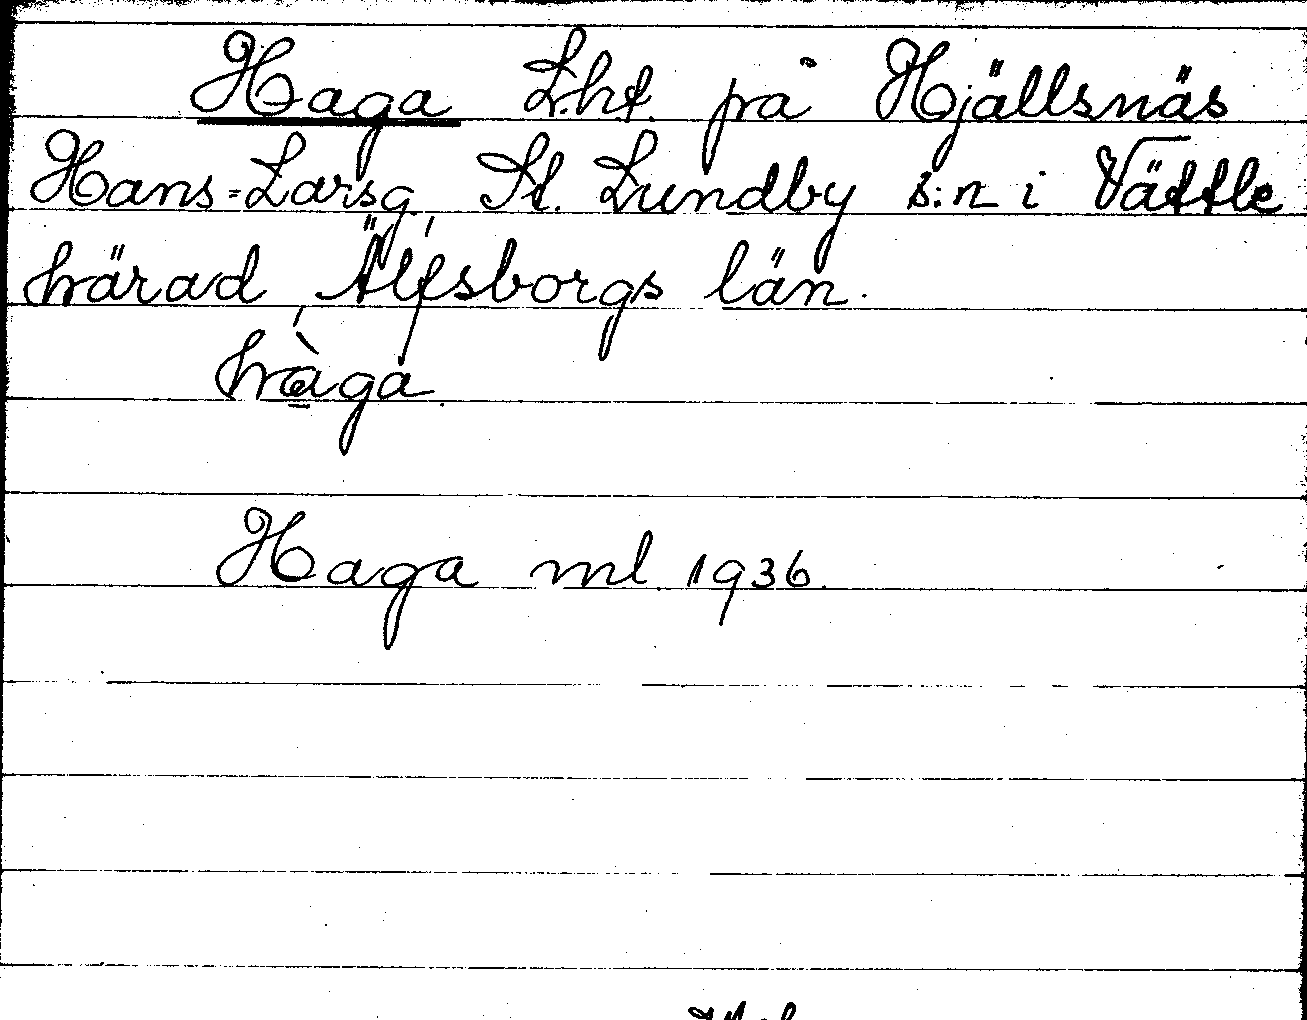 Haga L.ht. på Hjällsnäs
Hans-Larsg. St. Lundby s:n i Vättle
härad Älfsborgs län.
hàga
Haga ml. 1936.